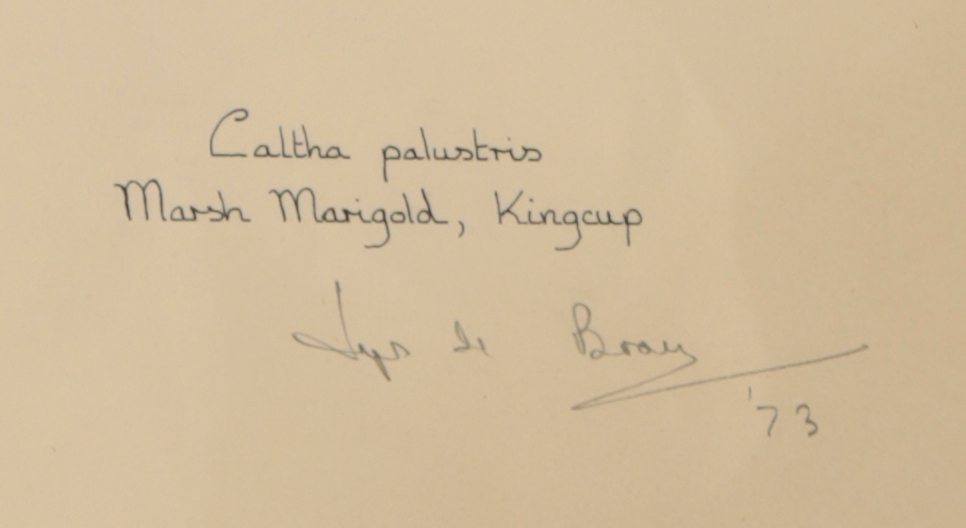 Caltha palustris
Marsh Marigold, Kingcup
Lys de Bray
'73